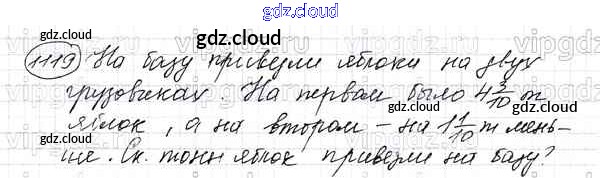 gdz.cloud
1119 На базу привезли яблоки на двух
gdz.cloud
грузовиках. На первом было 4 3/10 т
gdz.cloud
gdz.cloud
яблок, а на втором – на 1 1/10 т мень-
ше. Ск. тонн яблок привезли на базу?
gdz.cloud
gdz.cloud